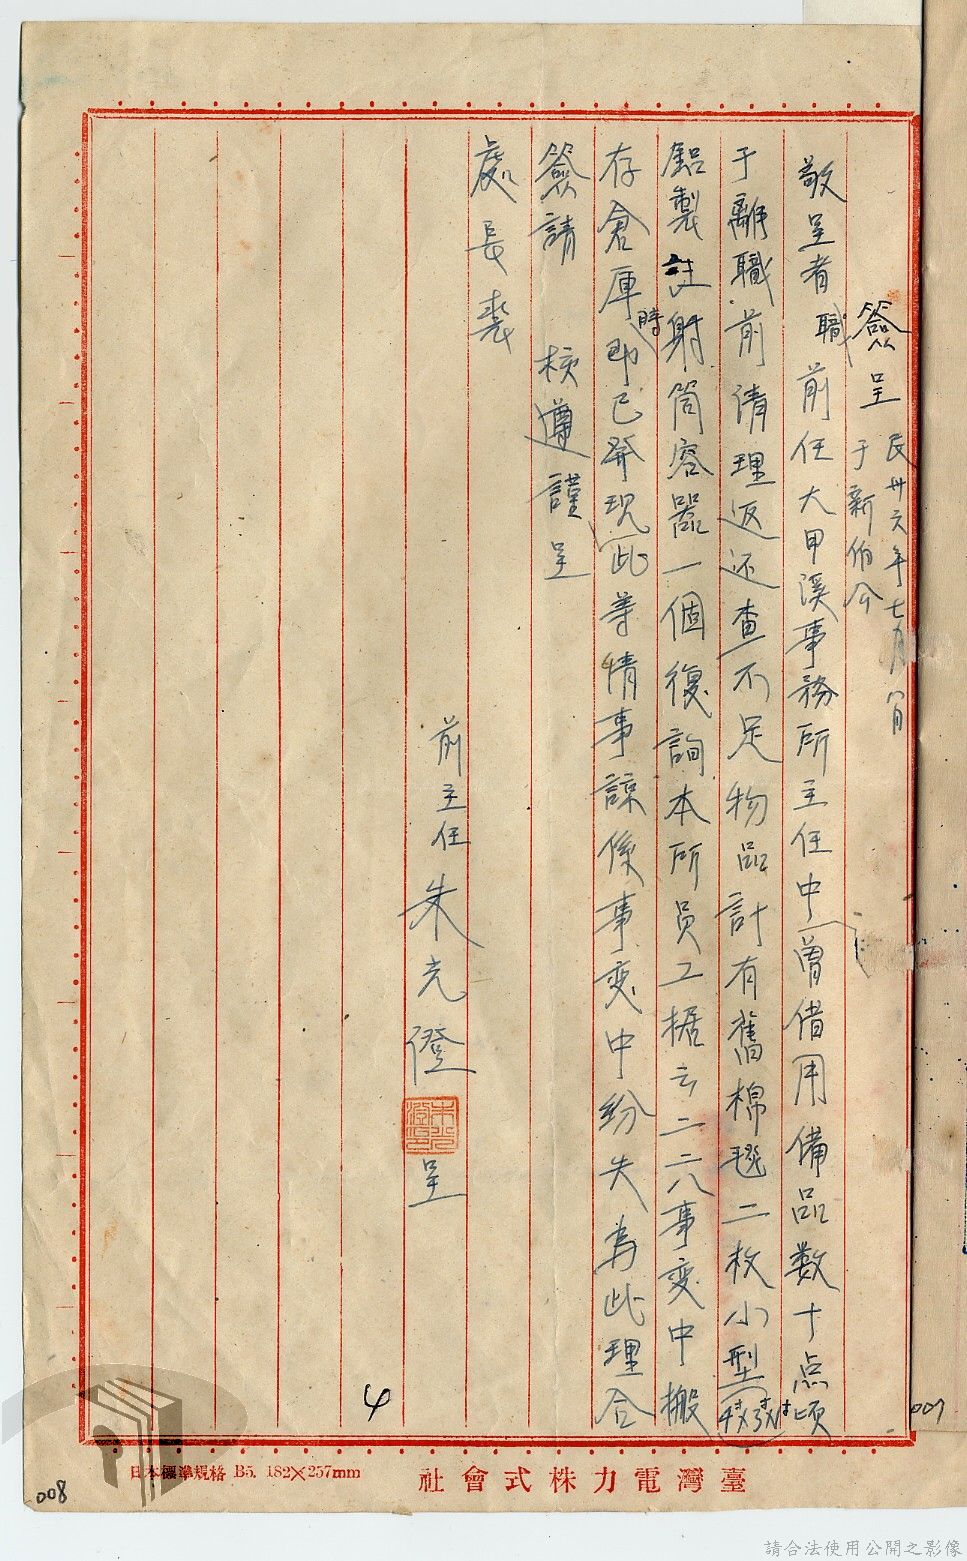 簽呈 民卅六年七月八日
于新伯公
敬呈者職前任大甲溪事務所主任中曾借用備品數十点頃
于離職前清理返还查不足物品計有舊棉毯二枚小型
鋁製註射筒容器一個復詢本所員工據云二二八事变中搬
存倉庫時即已發現此等情事諒係事变中紛失為此理合
簽請 核遵謹呈
處長裴
前主任朱光澄 呈
4
007
008
日本標準規格 B5. 182×257mm
社會式株力電灣臺
請合法使用公開之影像